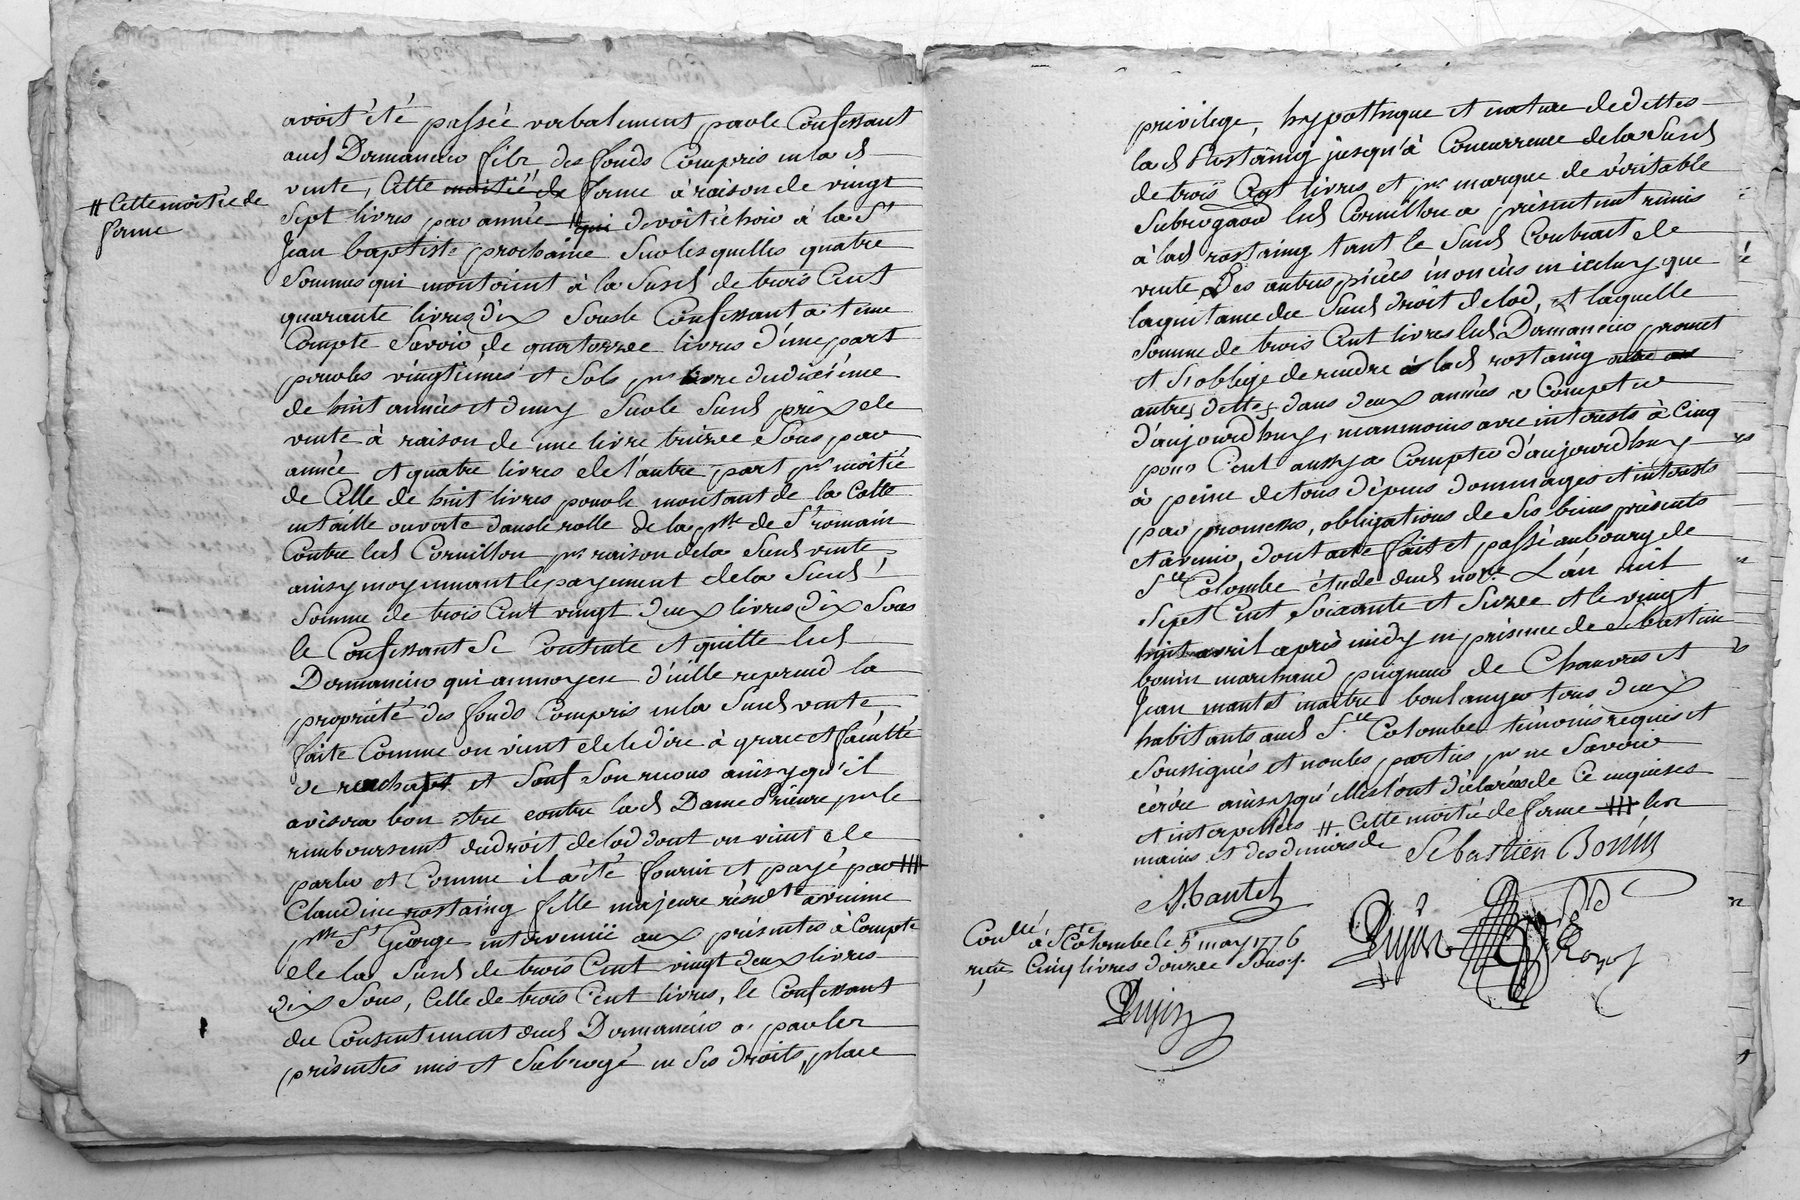 avoit été passée verbalement par le Confessant
aud Dormancin fils des fonds Compris en lad
vente, Cette moitié de ferme à raison de vingt
# Cette moitié de
ferme
Sept livres par année # qui devoit échoir à la St
Jean baptiste prochaine Sur lesquelles quatre
Sommes qui montoient à la Susd de trois Cent
quarante livres dix Sous le Confessant a tenu
Compte Savoir de quatorze livres d'une part
pour les vingtiemes et Sols pr livre du dixiéme
de huit années et demy Sur le Susd prix de
vente à raison de une livre treize Sous par
année et quatre livres de l'autre part pr moitié
de Celle de huit livres pour le montant de la Cotte
en taille ouverte dans le rolle de la psse de St romain
Contre led Cornillon pr raison de la Susd vente,
ainsy moyennant le payement de la Susd
Somme de trois Cent vingt deux livres dix Sous
le Confessant Se Contente et quitte led
Dormancin qui au moyen d'icelle reprend la
propriété des fonds Compris en la Susd vente,
faite Comme on vient de le dire à grace et faculté
de rachapt et Sauf Son recours ainsy qu'il
avisera bon être contre lad Dame Prieure pr le
remboursemt du droit de lod dont on vient de
parler et Comme il a été fourni et payé par ####
Claudine rostaing fille majeure résidte a vienne
psse St George intervenüe aux présentes à Compte
de la Susd de trois Cent vingt deux livres
dix Sous, Celle de trois Cent livres, le Confessant
du Consentement dud Dormancin a par les
présentes mis et Subrogé en Ses droits, place
privilege, hypotheque et nature de dettes
lad Rostaing jusqu'à Concurrence de la Susd
de trois Cent livres et pr marque de véritable
Subrogaon led Cornillon a présentemt remis
à lad rostaing tant le Susd Contrat de
vente Des autres pièces énoncées en iceluy que
la quitance du Susd droit de lod, et laquelle
Somme de trois Cent livres led Dormancin promet
et S'oblige de rendre à lad rostaing
autres dettes dans deux années a Compter
d'aujourdhuy, neanmoins avec interests à Cinq
pour Cent aussy a Compter d'aujourdhuy
à peine de tous dépens dommages et interests
par promesses, obligations de Ses biens présents
et avenir, dont acte fait et passé au bourg de
Ste Colombe étude dud nore L'an mil
Sept Cent Soixante et Seize et le vingt
huit avril après midy en présence de Sébastien
bonin marchand peigneur de Chanvres et
Jean mantel maitre boulanger tous deux
habitants aud Ste Colombe témoins requis et
Soussignés et non les parties pr ne Savoir
écrire ainsy qu'elles l'ont déclaré de Ce enquises
et interpellées # Cette moitié de ferme #### les
mains et des deniers de
Sebastien Bonin
Mantel
Dujon
Conllé à Ste Colombe le 5 may 1776
reçu Cinq livres douze Sous
Dujon